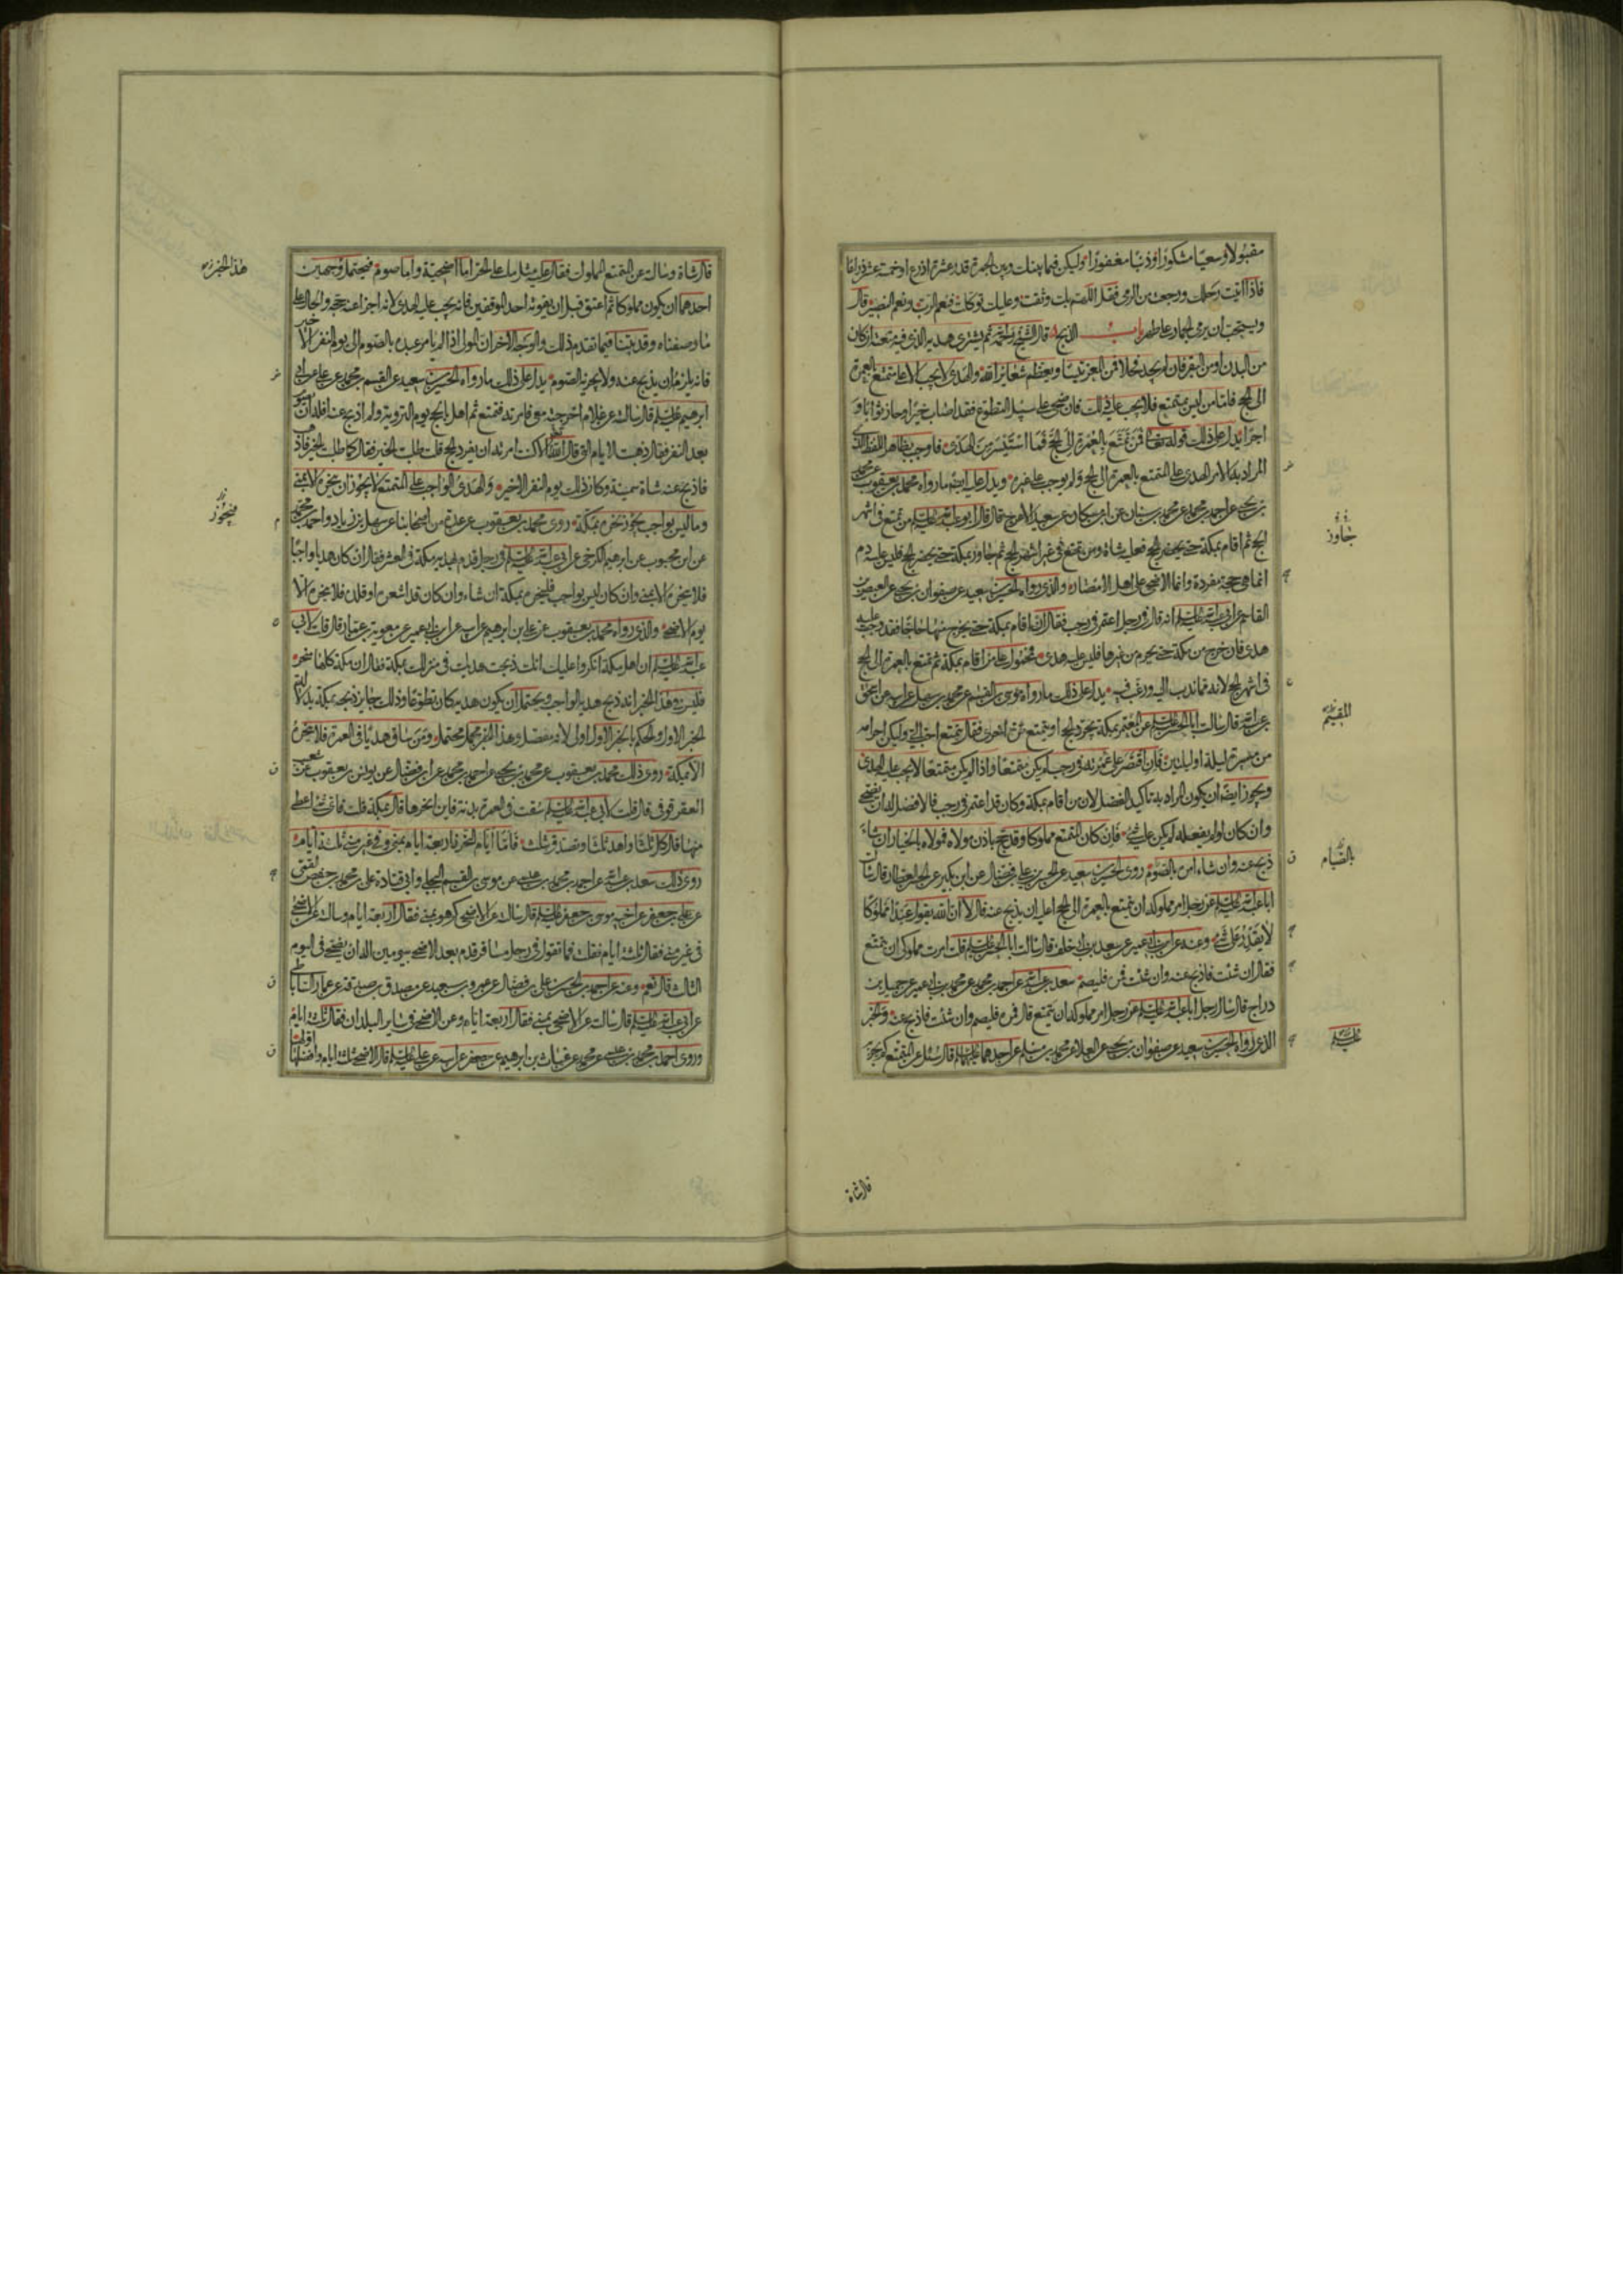 مقبولا وسعيا مشكورا وذنبا مغفورا وليكن فيما بينك وبين الجمرة قدر عشرة اذرع او خمسة عشر ذراعا
فاذا اتيت رحلك ورجعت من الرمى فقل اللهم بك وثقت وعليك توكلت فنعم الرب ونعم النصير قال
ويستحب ان يرمى الجمار على طهر باب الذبح قال الشيخ رحمه ثم يشترى هديه الذى فيه متعته ان كان
من البدن او من البقر فان لم يجد فحلا فمن الغنم تيسا ويعظم شعائر الله والهدى لا يجب الا على متمتع بالعمرة
الى الحج فاما من ليس بمتمتع فلا يجب عليه ذلك فان ضحى على سبيل التطوع فقد اصاب خيرا وحاز ثوابا و
اجرا يدل على ذلك قوله تعالى فمن تمتع بالعمرة الى الحج فما استيسر من الهدى فاوجب بظاهر اللفظ الذى
المراد به الامر الهدى على المتمتع بالعمرة الى الحج ولم يوجب على غيره ويدل عليه ايضا ما رواه محمد بن يعقوب عن محمد
بن يحيى عن احمد بن محمد عن محمد بن سنان عن ابن مسكان عن سعيد الاعرج قال قال ابو عبد الله عليه السلم من تمتع فى اشهر
الحج ثم اقام بمكة حتى يحضر الحج فعليه شاة ومن تمتع فى غير اشهر الحج ثم جاور بمكة حتى يحضر الحج فليس عليه دم
انما هى حجة مفردة وانما الاضحى على اهل الامصار والذى رواه الحسين بن سعيد عن صفوان بن يحيى عن العيص بن
القاسم عن ابى عبد الله عليه السلم انه قال فى رجل اعتمر فى رجب فقال ان اقام بمكة حتى يخرج منها حاجا فقد وجب عليه
هدى فان خرج من مكة حتى يحرم من غيرها فليس عليه هدى فمحمول على من اقام بمكة ثم تمتع بالعمرة الى الحج
فى اشهر الحج لانه مما ندب اليه ورغب فيه يدل على ذلك ما رواه موسى بن القسم عن محمد بن سهل عن ابيه عن اسحق
بن عبد الله قال سالت ابا الحسن عليه السلم عن المعتمر بمكة يجرد الحج او يتمتع مرة اخرى فقال يتمتع احب الى وليكن احرامه
من مسيرة ليلة او ليلتين فان اقتصر على عمرته فى رجب لم يكن متمتعا واذا لم يكن متمتعا لا يجب عليه الهدى
ويجوز ايضا ان يكون المراد به تاكيد الفضل لان من اقام بمكة وكان قد اعتمر فى رجب فالافضل له ان يضحى
وان كان لو لم يفعله لم يكن عليه شئ فان كان المتمتع مملوكا وقد حج باذن مولاه فمولاه بالخيار ان شاء
ذبح عنه وان شاء امره بالصوم روى الحسين بن سعيد عن الحسن بن على بن فضال عن ابن بكير عن الحسن العطار قال سالت
ابا عبد الله عليه السلم عن رجل امر مملوكه ان يتمتع بالعمرة الى الحج اعليه ان يذبح عنه قال لا ان الله يقول عبدا مملوكا
لا يقدر على شئ وعنه عن ابن ابى عمير عن سعد بن ابى خلف قال سالت ابا الحسن عليه السلم قلت امرت مملوكى ان يتمتع
فقال ان شئت فاذبح عنه وان شئت فمره فليصم سعد بن عبد الله عن احمد بن محمد عن محمد بن ابى عمير عن جميل بن
دراج قال سال رجل ابا عبد الله عليه السلم عن رجل امر مملوكه ان يتمتع قال فمره فليصم وان شئت فاذبح عنه والخبر
الذى رواه الحسين بن سعيد عن صفوان بن يحيى عن العلاء عن محمد بن مسلم عن احدهما عليهما السلم قال سئل عن المتمتع كم يجزيه
جاور
المقيم
بالصيام
عليه السلم
قال شاة
قال شاة وسالته عن المتمتع المملوك فقال عليه مثل ما على الحر اما اضحية واما صوم فيحتمل وجهين
احدهما ان يكون مملوكا ثم اعتق قبل ان يفوته احد الموقفين فانه يجب عليه الهدى لانه اجزا عنه حجه والحال على
ما وصفناه وقد بينا فيما تقدم ذلك والوجه الاخر ان المولى اذا لم يامر عبده بالصوم الى يوم النفر الاخير
فانه يلزمه ان يذبح عنه ولا يجزيه الصوم يدل على ذلك ما رواه الحسين بن سعيد عن القسم بن محمد عن على عن ابى
ابرهيم عليه السلم قال سالته عن غلام اخرجته معى فامرته فتمتع ثم اهل بالحج يوم التروية ولم اذبح عنه افله ان يصوم
بعد النفر فقال ذهبت الايام التى قال الله الا كنت امرته ان يفرد الحج قلت طلبت الخير فقال كما طلبت الخير فاذهب
فاذبح عنه شاة سمينة وكان ذلك يوم النفر الاخير والهدى الواجب على المتمتع لا يجوز ان ينحره الا بمنى
وما ليس بواجب يجوز نحره بمكة روى محمد بن يعقوب عن عدة من اصحابنا عن سهل بن زياد واحمد بن محمد
عن ابن محبوب عن ابرهيم الكرخى عن ابى عبد الله عليه السلم فى رجل قدم بهديه مكة فى العشر فقال ان كان هديا واجبا
فلا ينحره الا بمنى وان كان ليس بواجب فلينحره بمكة ان شاء وان كان قد اشعره او قلده فلا ينحره الا
يوم الاضحى والذى رواه محمد بن يعقوب عن على بن ابرهيم عن ابيه عن ابن ابى عمير عن معوية بن عمار قال قلت لابى
عبد الله عليه السلم ان اهل مكة انكروا عليك انك ذبحت هديك فى منزلك بمكة فقال ان مكة كلها منحر
فليس فى هذا الخبر انه ذبح هديه الواجب ويحتمل ان يكون هديه كان تطوعا وذلك جايز ذبحه بمكة بدلالة
الخبر الاول والحكم بالخبر الاول اولى لانه مفصل وهذا الخبر مجمل محتمل ومن ساق هديا فى العمرة فلا ينحره
الا بمكة روى ذلك محمد بن يعقوب عن محمد بن يحيى عن احمد بن محمد عن ابن فضال عن يونس بن يعقوب عن شعيب
العقرقوفى قال قلت لابى عبد الله عليه السلم سقت فى العمرة بدنة فاين انحرها قال بمكة قلت فاى شئ اعطى
منها قال كل ثلثا واهد ثلثا وتصدق بثلث فاما ايام النحر فاربعة ايام بمنى وفى غير منى ثلثة ايام
روى ذلك سعد بن عبد الله عن احمد بن محمد بن عيسى عن موسى بن القسم البجلى وابى قتادة على بن محمد بن حفص القمى
عن على بن جعفر عن اخيه موسى بن جعفر عليه السلم قال سالته عن الاضحى كم هو بمنى فقال اربعة ايام وسالته عن الاضحى
فى غير منى فقال ثلثة ايام فقلت فما تقول فى رجل مسافر قدم بعد الاضحى بيومين اله ان يضحى فى اليوم
الثالث قال نعم وعنه عن احمد بن الحسن بن على بن فضال عن عمرو بن سعيد عن مصدق بن صدقة عن عمار الساباطى
عن ابى عبد الله عليه السلم قال سالته عن الاضحى بمنى فقال اربعة ايام وعن الاضحى فى ساير البلدان فقال ثلثة ايام
وروى احمد بن محمد بن عيسى عن محمد عن غياث بن ابرهيم عن جعفر عن ابيه عن على عليه السلم قال الاضحى ثلثة ايام وافضلها اولها
هذا الخبر
فيجوز